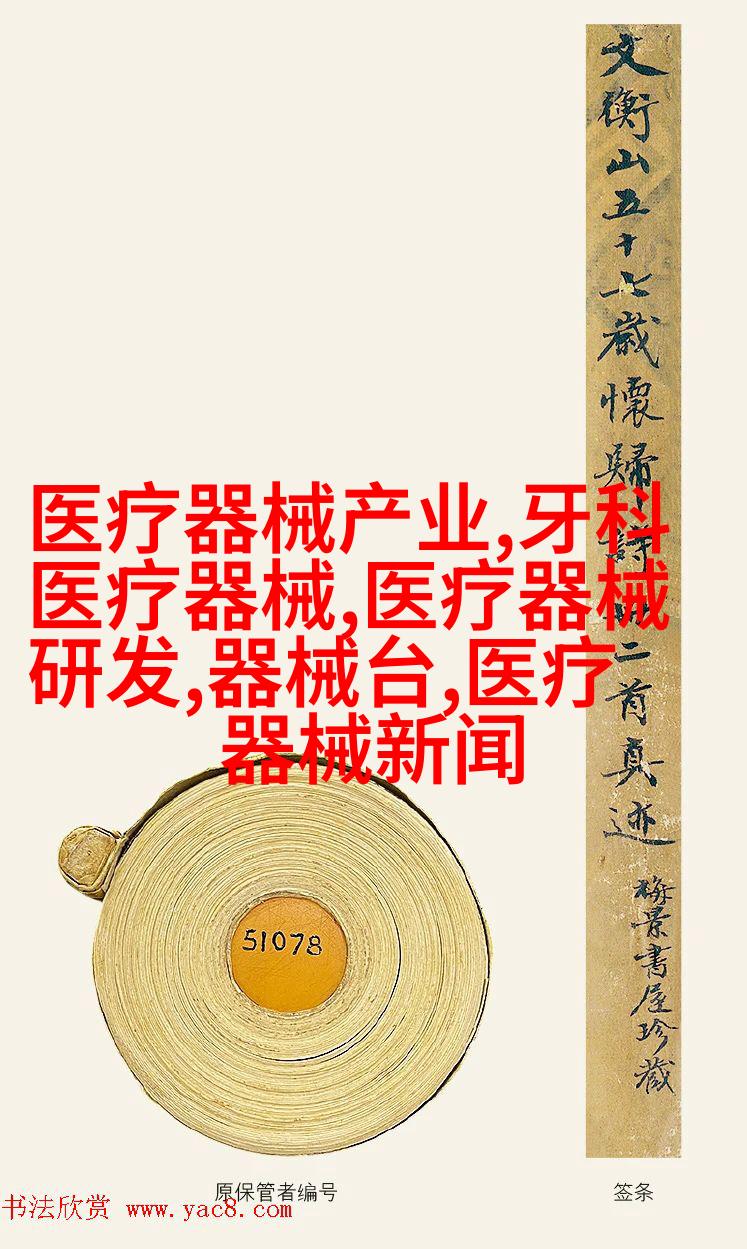 文衡山五十七歲懷歸詩卅二首真迹
梅景書屋珍藏
医疗器械产业,牙科
医疗器械,医疗器械
研发,器械台,医疗
器械新闻
51078
原保管者编号
签条
书法欣赏 www.yac8.com